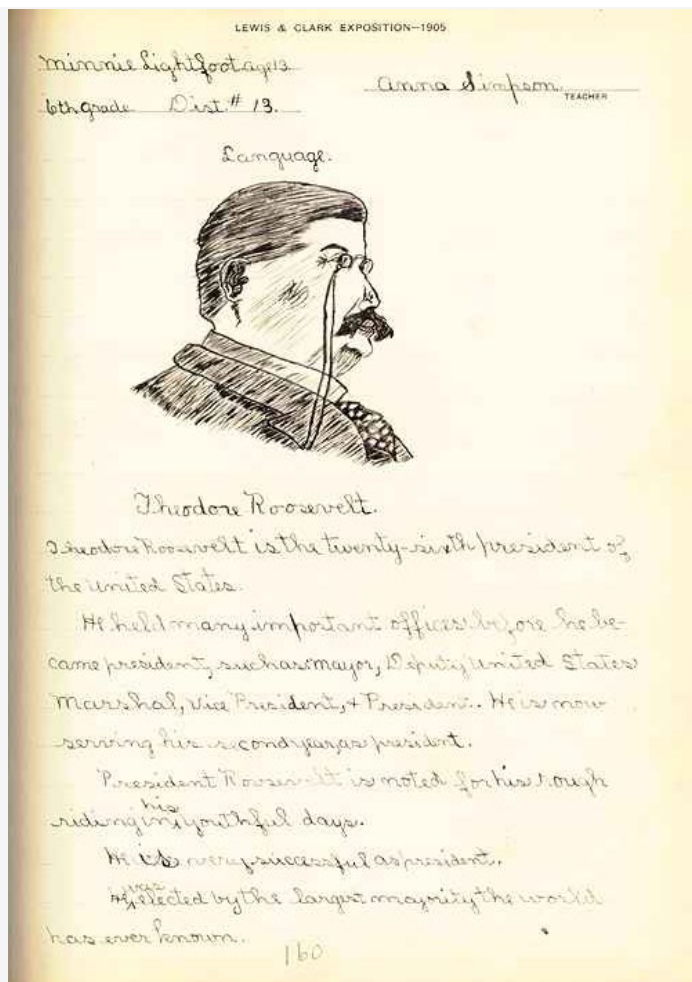 LEWIS & CLARK EXPOSITION—1905
Minnie Lightfoot age 13
Anna Simpson
TEACHER
6th grade Dist. # 13.
Language.
Theodore Roosevelt.
Theodore Roosevelt is the twenty-sixth president of
the United States.
He held many important offices before he be-
came president, such as mayor, Deputy United States
Marshal, Vice President, + President. He is now
serving his second year, as president.
President Roosevelt is noted for his rough
riding in his youthful days.
He is very successful as president.
He was elected by the largest majority the world
has ever known.
160